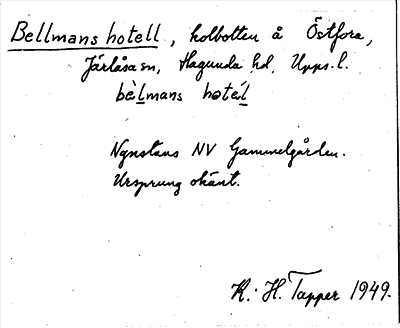 Bellmans hotell, kolbotten å Östfora,
Järlåsa sn, Hagunda hd, Upps. l.
bèlmans hoté́l
Ngnstans NV Gammelgården.
Ursprung okänt.
R: H. Tapper 1949.